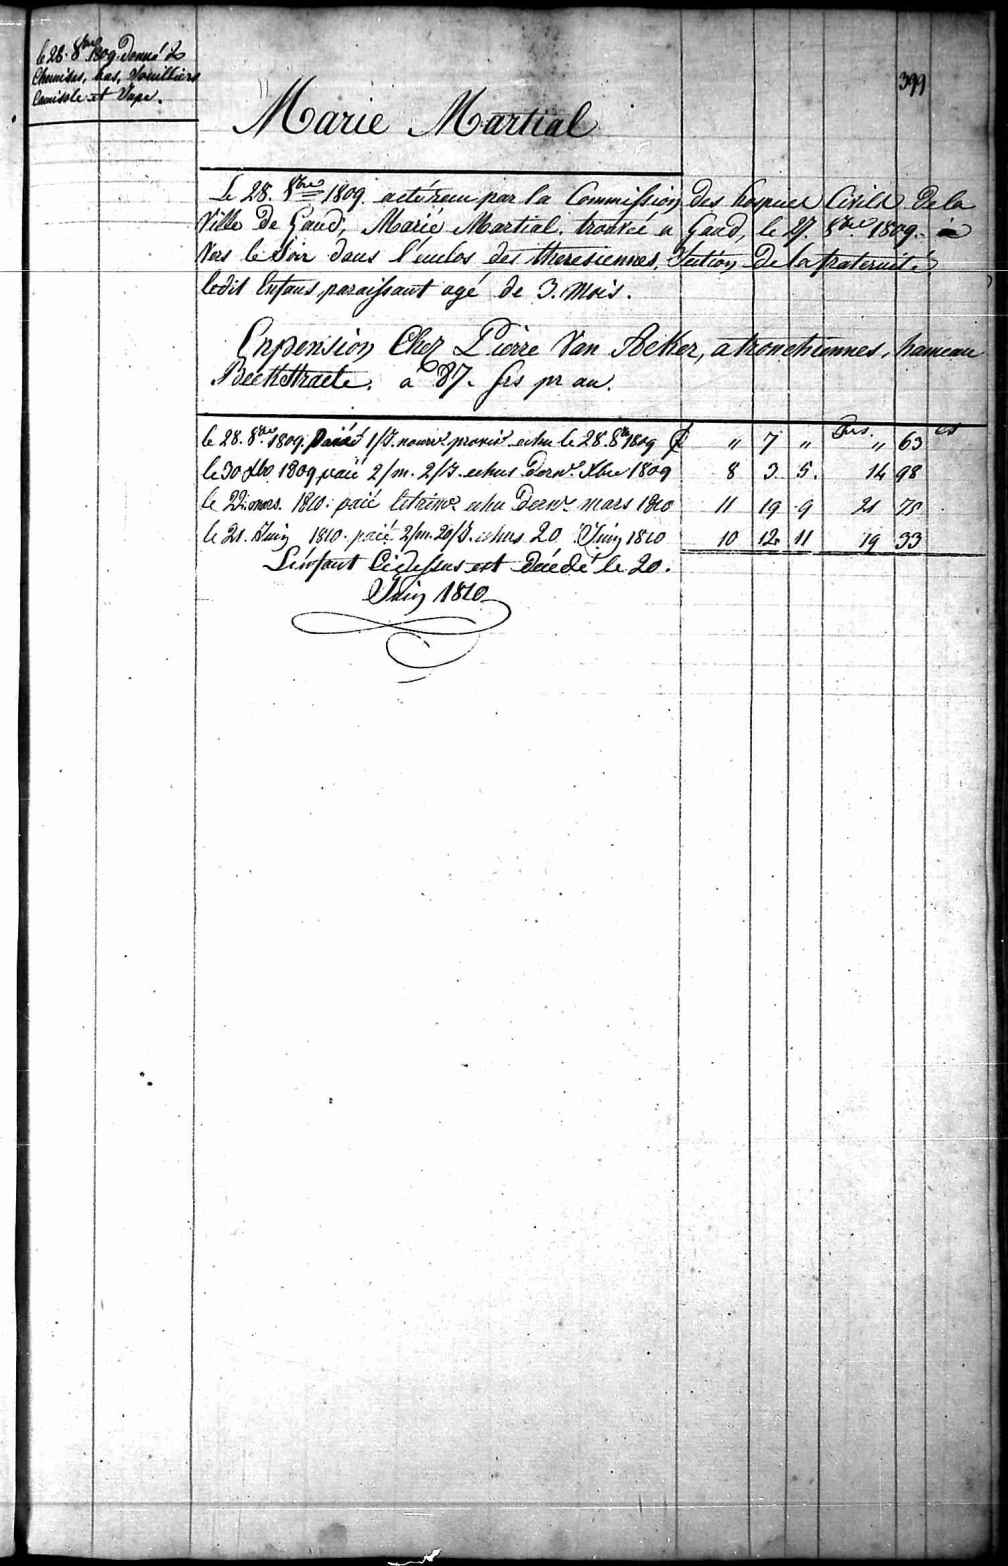 le 28. 8bre 1809. donné 2
Chemises, bas,
Camisole et Jupe.
399
Marie Martial
Le 28. 8bre 1809. a été reçu par la Commission des hospices Civils de la
Ville de Gand, Marie Martial, trouvée a Gand, le 27. 8bre 1809. à
Vers le Soir dans l'enclos des theresiennes, Section de la fraternité
ledit Enfant paraissant agé de 3. mois.
En pension Chez Pierre Van Acker, a tronchiennes, hameau
Beekstraete. a 87. frs pr an.
frs. cs
le 28. 8bre 1809. paié 1/J. nourre provis. echu le 28. 8bre 1809 £ " 7 " " 63
le 30 Xbre 1809 paié 2/m. 2/J. echus dernr. Xbre 1809 8 3 5. 14 98
le 22 mars. 1810. paié le trimre echu dernr mars 1810 11 19 9 21 75
le 21. Juin 1810. paié 2/m. 20/J. echus 20 Juin 1810 10 12 11 19 33
L'enfant Cidessus est décédé le 20.
Juin 1810